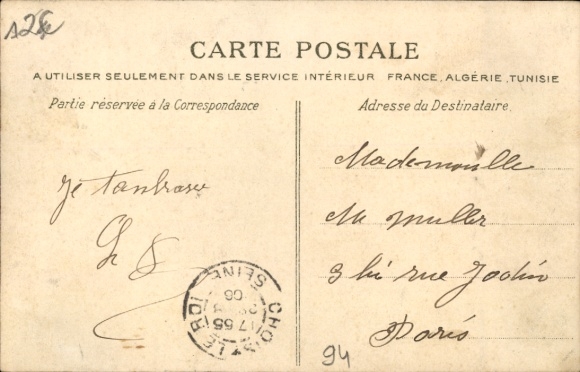 CARTE POSTALE
A UTILISER SEULEMENT DANS LE SERVICE INTÉRIEUR FRANCE, ALGÉRIE, TUNISIE
Partie réservée à la Correspondance
Adresse du Destinataire.
Je tanbrasse
Mademoiselle
M muller
3 bi rue
Paris
CHOISY LE ROI
SEINE
17 55
94